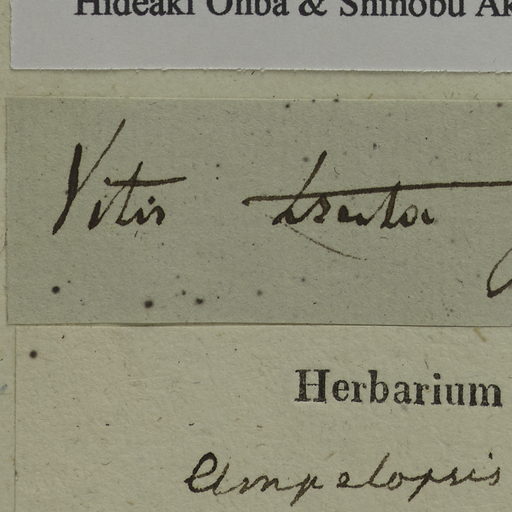 Hideaki Ohba & Shinobu Ak
Vitis
Herbarium
Ampelopsis